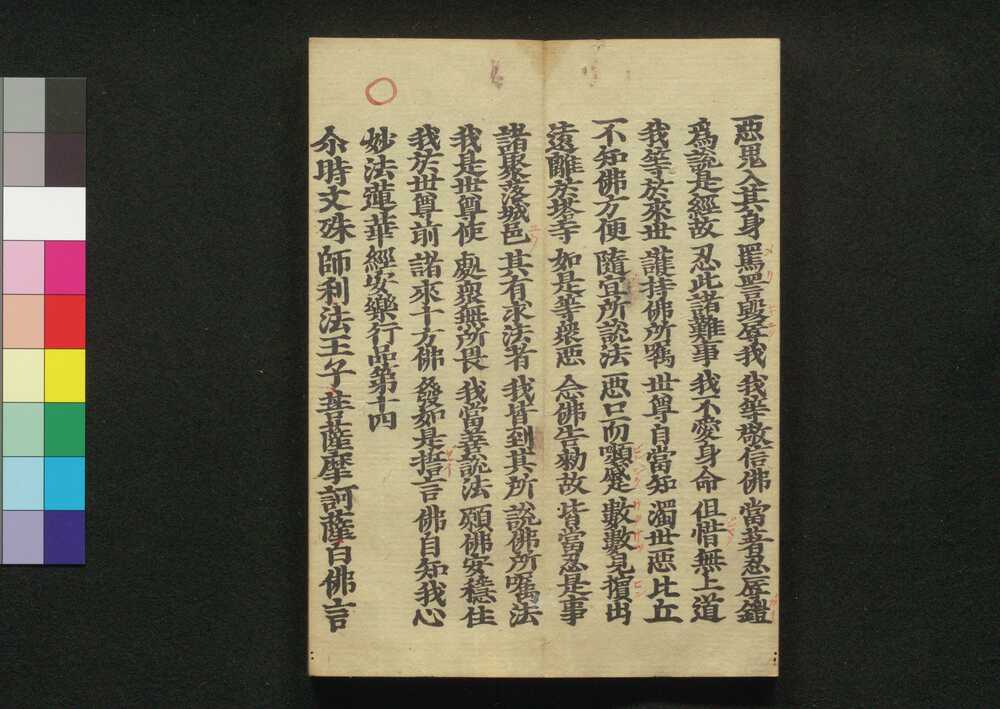 惡鬼入其身 罵詈毀辱我 我等敬信佛 當著忍辱鎧
爲說是經故 忍此諸難事 我不愛身命 但惜無上道
我等於來世 護持佛所囑 世尊自當知 濁世惡比丘
不知佛方便 隨宜所說法 惡口而顰蹙 數數見擯出
遠離於塔寺 如是等衆惡 念佛告勅故 皆當忍是事
諸聚落城邑 其有求法者 我皆到其所 說佛所囑法
我是世尊使 處衆無所畏 我當善說法 願佛安穩住
我於世尊前 諸來十方佛 發如是誓言 佛自知我心
妙法蓮華經安樂行品第十四
尒時文殊師利法王子菩薩摩訶薩白佛言